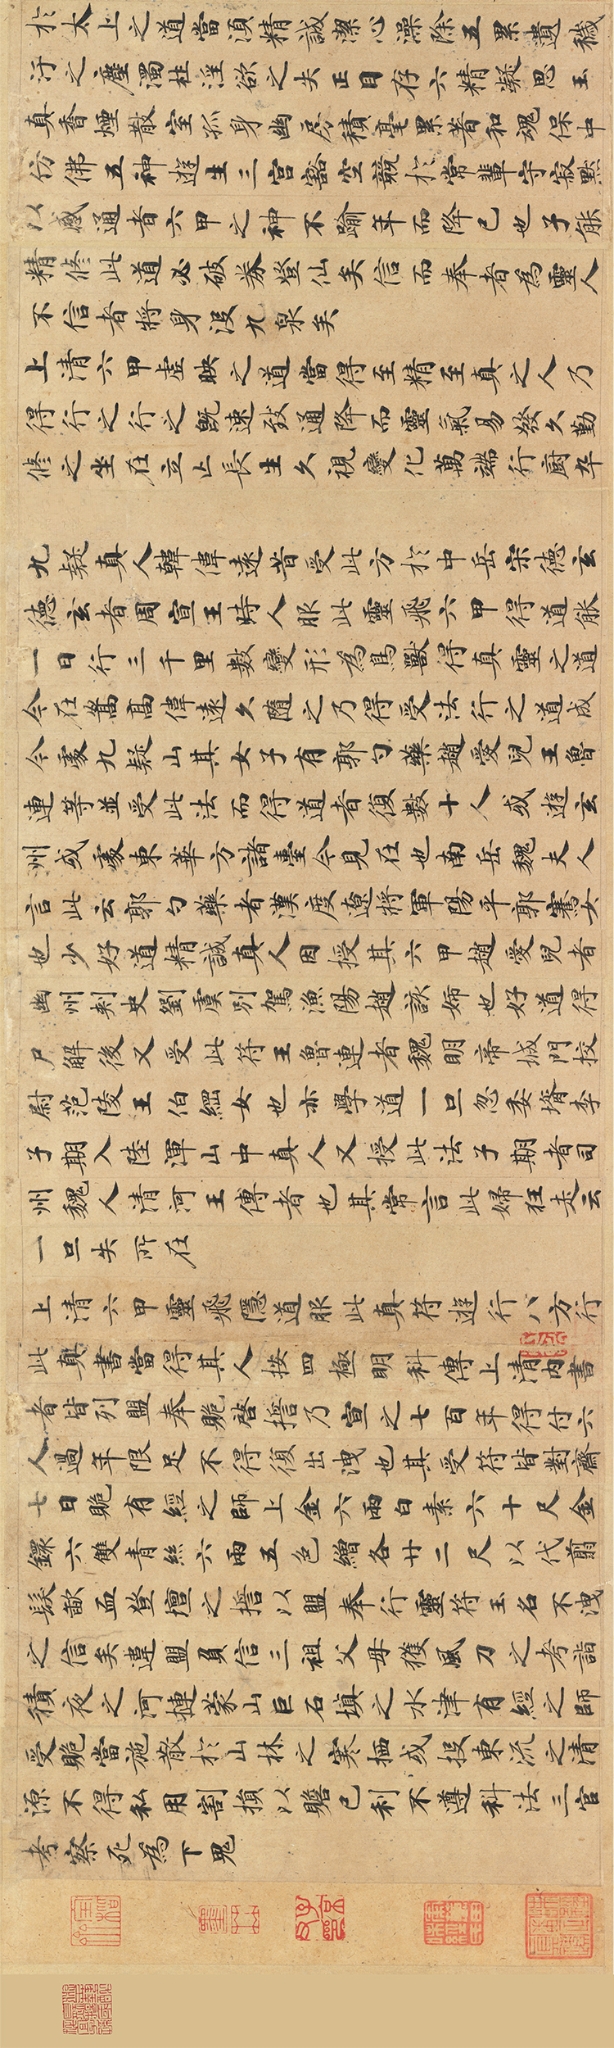 於太上之道當須精誠潔心澡除五累遺穢
汙之塵濁杜淫欲之失正目存六精凝思玉
真香煙散室孤身幽房積毫累著和魂保中
仿佛五神遊生三宮豁空競於常輩守寂默
以感通者六甲之神不踰年而降己也子能
精修此道必破券登仙矣信而奉者為靈人
不信者將身沒九泉矣
上清六甲虛映之道當得至精至真之人乃
得行之行之既速致通降而靈氣易發久勤
修之坐在立亡長生久視變化萬端行廚卒
九疑真人韓偉遠昔受此方於中岳宋德玄
德玄者周宣王時人服此靈飛六甲得道能
一日行三千里數變形為鳥獸得真靈之道
今在嵩高偉遠久隨之乃得受法行之道成
今處九疑山其女子有郭勺藥趙愛兒王魯
連等並受此法而得道者復數十人或遊玄
州或處東華方諸臺今見在也南岳魏夫人
言此云郭勺藥者漢度遼將軍陽平郭騫女
也少好道精誠真人因授其六甲趙愛兒者
幽州刺史劉虞別駕漁陽趙該姊也好道得
尸解後又受此符王魯連者魏明帝城門校
尉范陵王伯綱女也亦學道一旦忽委壻李
子期入陸渾山中真人又授此法子期者司
州魏人清河王傅者也其常言此婦狂走云
一旦失所在
上清六甲靈飛隱道服此真符遊行八方行
此真書當得其人按四極明科傳上清內書
者皆列盟奉賝啓誓乃宣之七百年得付六
人過年限足不得復出洩也其受符皆對齋
七日賝有經之師上金六兩白素六十尺金
鐶六雙青絲六兩五色繒各廿二尺以代翦
髮歃血登壇之誓以盟奉行靈符玉名不洩
之信矣違盟負信三祖父母獲風刀之考詣
積夜之河摙蒙山巨石填之水津有經之師
受賝當施散於山林之寒栖或投東流之清
源不得私用割損以贍己利不遵科法三官
考察死為下鬼